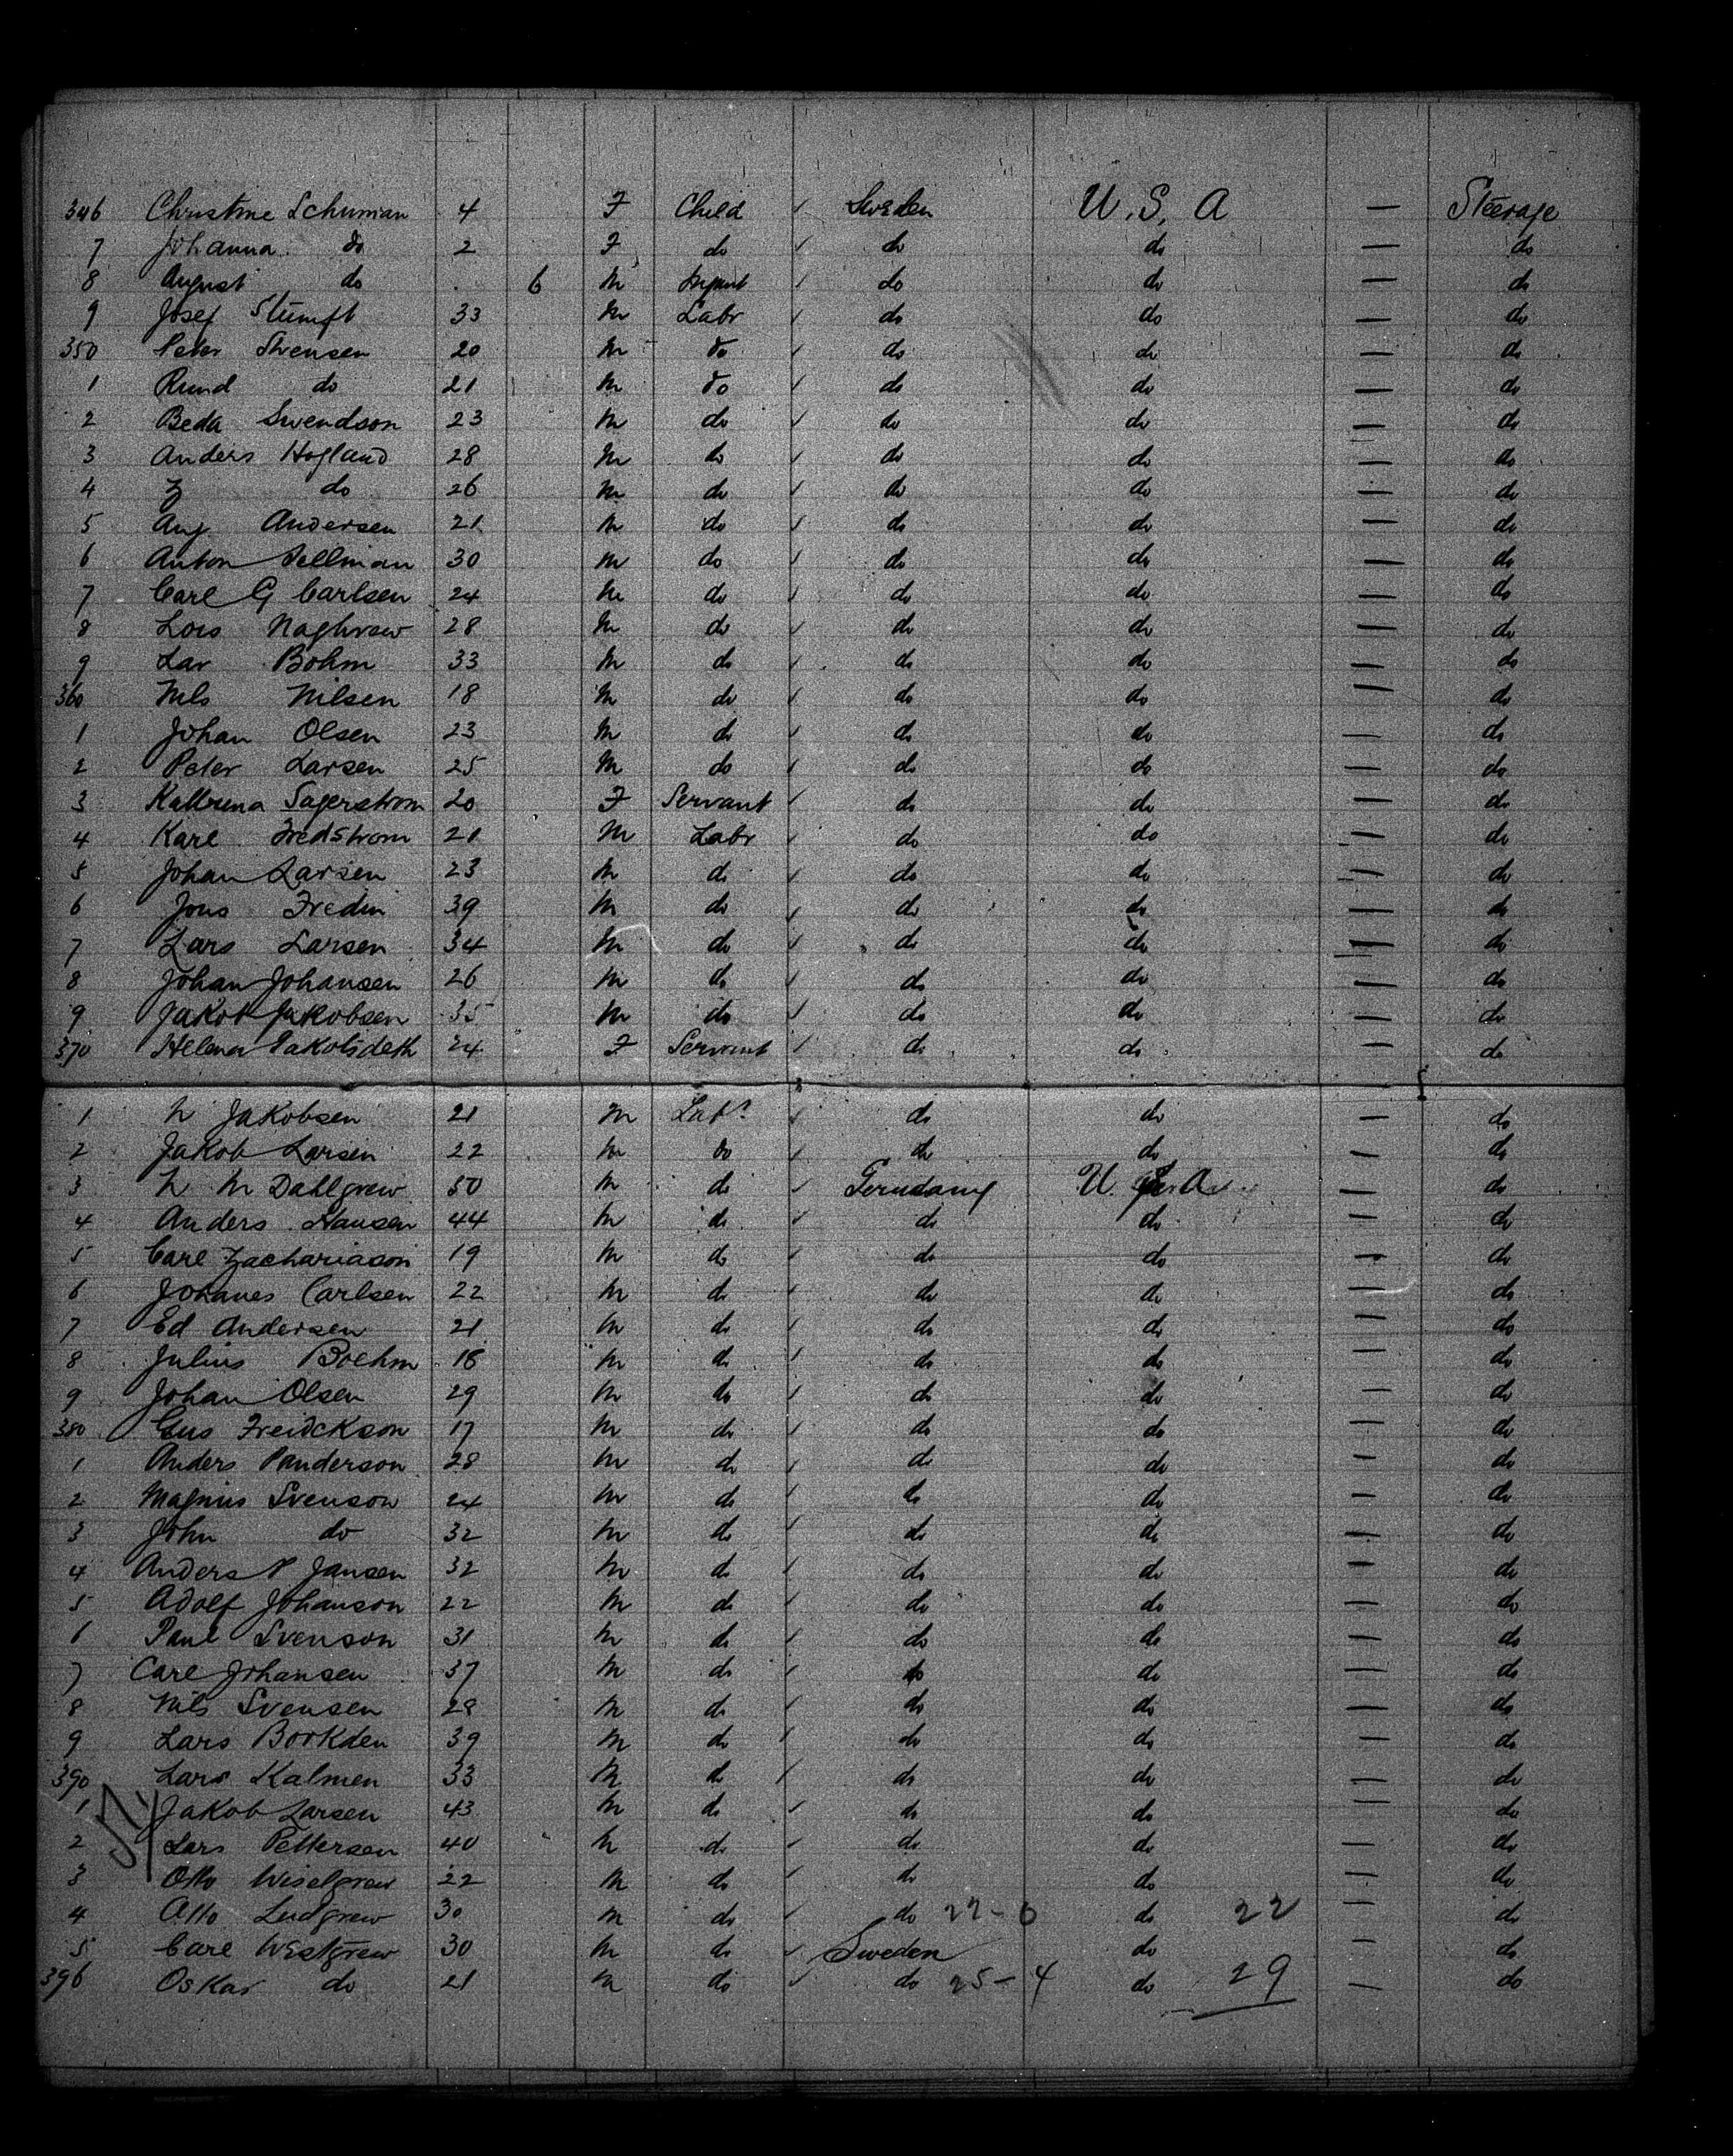 346 Christine Schuman 4 F Child Sweden U. S. A — Steerage
7 Johanna do 2 F do do do — do
8 August do 6 M Infant do do — do
9 Josef Stumft 33 M Labr do do — do
350 Peter Svensen 20 M do do do — do
1 Rund do 21 M do do do — do
2 Beda Swendson 23 M do do do — do
3 Anders Hogland 28 M do do do — do
4 do 26 M do do do — do
5 Aug Andersen 21 M do do do — do
6 Anton Sellman 30 M do do do — do
7 Carl G Carlsen 24 M do do do — do
8 Lois Naghrew 28 M do do do — do
9 Lar Bohm 33 M do do do — do
360 Nils Nilsen 18 M do do do — do
1 Johan Olsen 23 M do do do — do
2 Peter Larsen 25 M do do do — do
3 Kathrena Sagerstrom 20 F Servant do do — do
4 Karl Fredstrom 21 M Labr do do — do
5 Johan Larsen 23 M do do do — do
6 Jons Fredin 39 M do do do — do
7 Lars Larsen 34 M do do do — do
8 Johan Johansen 26 M do do do — do
9 Jakob Jakobsen 35 M do do do — do
370 Helena Jakobsdeth 24 F Servant do do — do
1 N Jakobsen 21 M Labr do do — do
2 Jakob Larsen 22 M do do do — do
3 N M Dahlgrew 50 M do U. S. A — do
4 Anders Hansen 44 M do do do — do
5 Carl Zachariason 19 M do do do — do
6 Johanes Carlsen 22 M do do do — do
7 Ed Andersen 21 M do do do — do
8 Julius Boehm 18 M do do do — do
9 Johan Olsen 29 M do do do — do
380 Gus Freidckson 17 M do do do — do
1 Anders Panderson 28 M do do do — do
2 Magnus Svenson 24 M do do do — do
3 John do 32 M do do do — do
4 Anders P Jansen 32 M do do do — do
5 Adolf Johanson 22 M do do do — do
6 Paul Svenson 31 M do do do — do
7 Carl Johansen 37 M do do do — do
8 Nils Svensen 28 M do do do — do
9 Lars Bookden 39 M do do do — do
390 Lars Kalmen 33 M do do do — do
1 Jakob Larsen 43 M do do do — do
2 Lars Pettersen 40 M do do do — do
3 Otto Wiselgrew 22 M do do do — do
4 Otto Ludgrew 30 M do do 22-0 do 22 — do
5 Carl Westgrew 30 M do Sweden do — do
396 Oskar do 21 M do do 25-4 do 29 — do